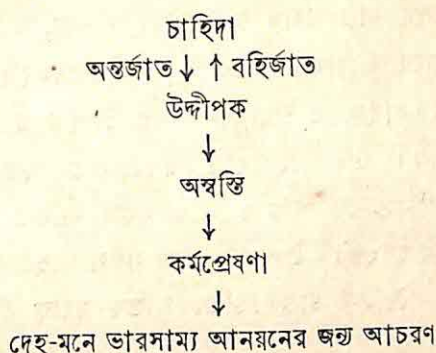 চাহিদা
অন্তর্জাত ↓ ↑ বহির্জাত
উদ্দীপক
↓
অস্বস্তি
↓
কর্মপ্রেষণা
↓
দেহ-মনে ভারসাম্য আনয়নের জন্য আচরণ